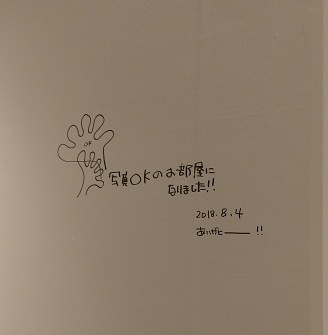 OK
写真OKのお部屋に
なりました!!
2018.8.4
ありがと——!!